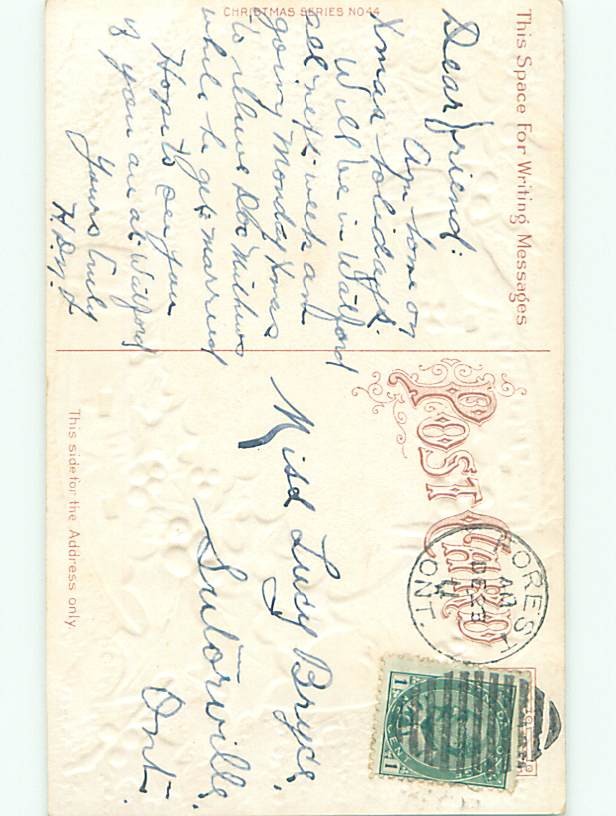 CHRISTMAS SERIES NO 44
This Space For Writing Messages
Dear friend:
Am home on
Xmas holidays.
Will be in Watford
all next week am
going Monday Xmas
to
while he gets married
Hope to see you
if you are at Watford
Yours truly
POST CARD
FOREST
ONT.
1 CENT 1
Miss Lucy Bryce,
Sutorville,
Ont.
This side for the Address only.